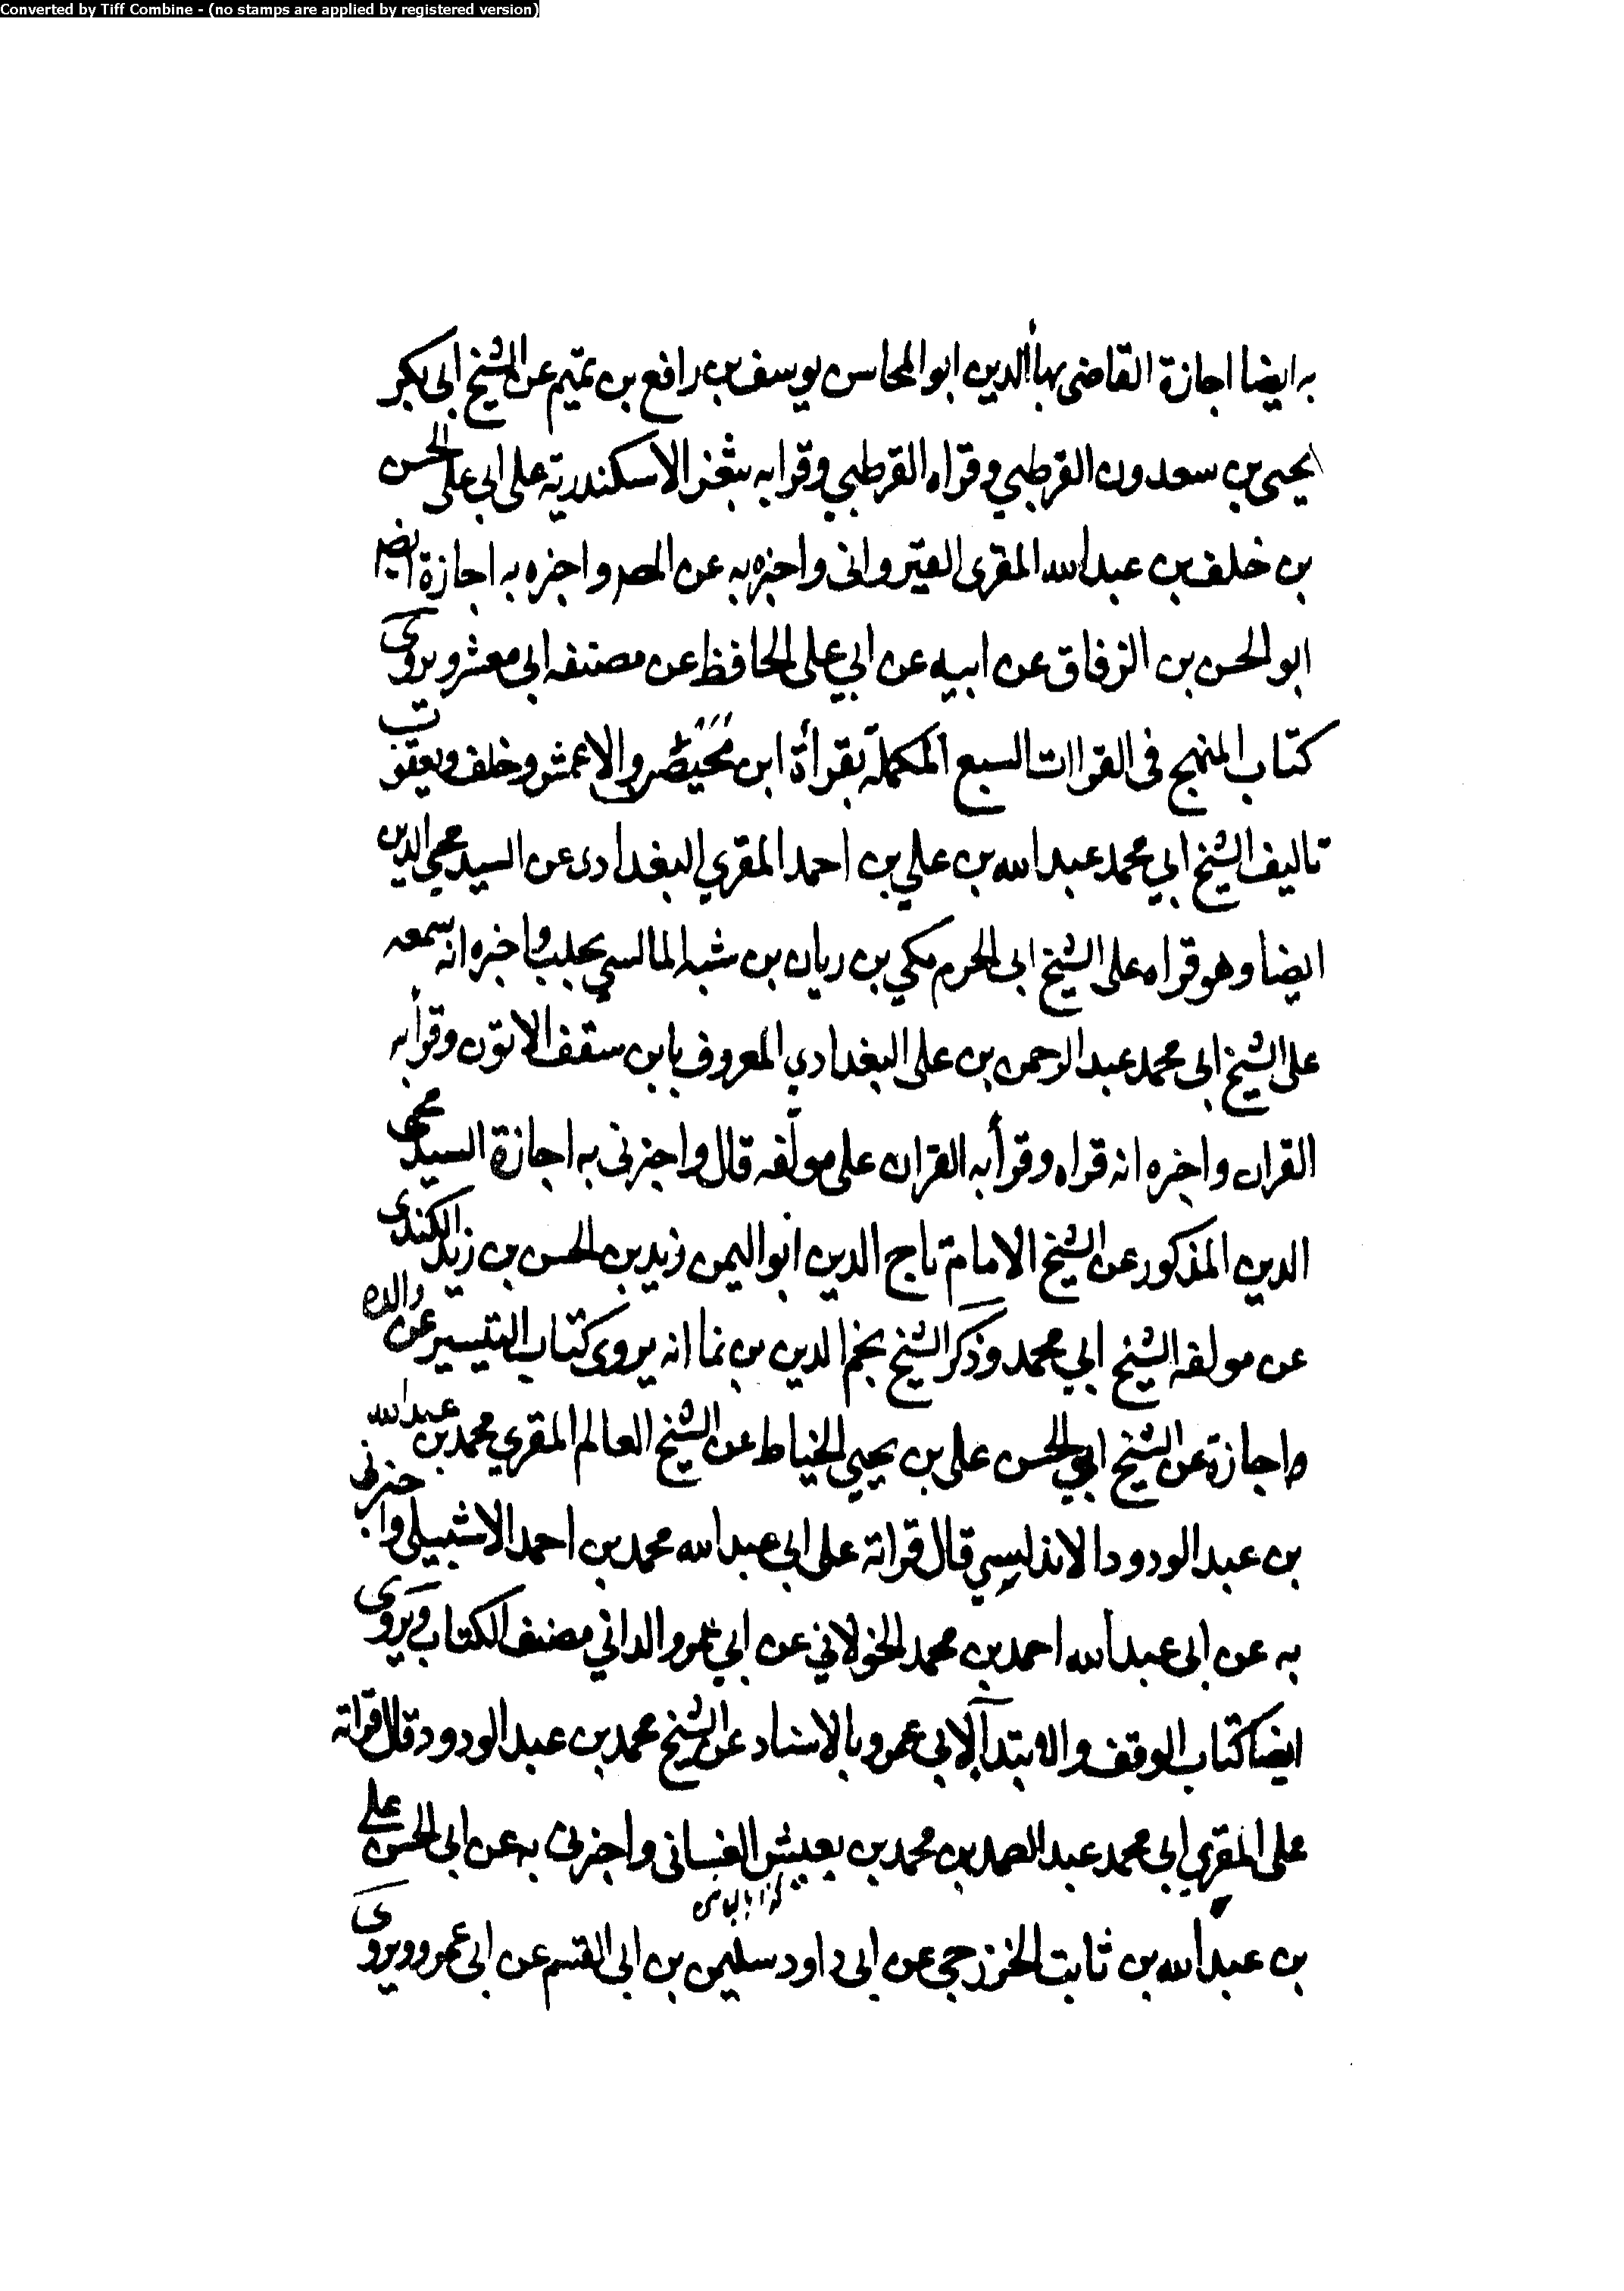 Converted by Tiff Combine - (no stamps are applied by registered version)
به ايضا اجازة القاضى بهاأالدين ابوالمحاسن يوسف بن رافع بن تميم عن الشيخ ابى بكر
يحيى بن سعدون القرطبي وقراه القرطبي وقرا به بثغر الاسكندرية على ابى على الحسن
بن خلف بن عبدالله المقرى القيروانى واخبره به عن المصر واخبره به اجازة ايضا
ابوالحسن بن الزقاق عن ابيه عن ابي على الحافظ عن مصنفه ابى معشر ويروى
كتاب المنهج فى القراات السبع المكملة بقرأة ابن مُحَيْصِر والاعمش وخلف ويعقوب
تاليف الشيخ ابي محمد عبدالله بن علي بن احمد المقري البغدادى عن السيد محي الدين
ايضا وهو قراه على الشيخ ابى الحرم مكي بن ريان بن شبه المالسي بحلب واخبره انه سمعه
على الشيخ ابى محمد عبدالرحمن بن على البغدادي المعروف بابن سقف الاتون وقرأبه
القران واخبره انه قراه وقرأ به القران على مولفه قال واخبرنى به اجازة السيد محى
الدين المذكور عن الشيخ الامام تاج الدين ابواليمن زيد بن الحسن بن زيد الكندى
عن مولفه الشيخ ابي محمد وذكر الشيخ نجم الدين بن نما انه يروى كتاب التيسير عن والده
اجازة عن الشيخ ابى الحسن على بن يحيي الخياط عن الشيخ العالم المقري محمد بن عبدالله
بن عبدالودود الاندلسي قال قراته على ابى عبدالله محمد بن احمد الاشبيلى واخبرنى
به عن ابى عبدالله احمد بن محمد الخولاني عن ابي عمرو الداني مصنف الكتاب ويروى
ايضا كتاب الوقف والابتدآ لابى عمرو بالاسناد عن الشيخ محمد بن عبدالودود قال قراته
على المقري ابى محمد عبدالصمد بن محمد بن يعيش الغسانى واخبرنى به عن ابى الحسن على
بن عبدالله بن ثابت الخزرجى عن ابى داود سليمن بن ابى القسم عن ابى عمرو ويروى